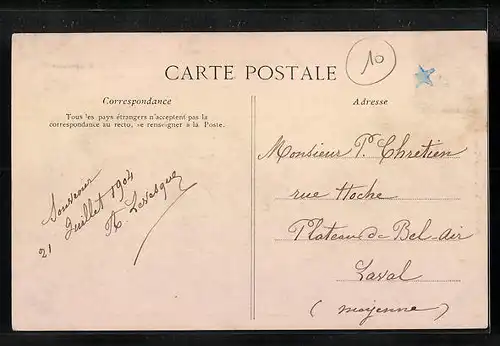 10
CARTE POSTALE
Correspondance
Tous les pays étrangers n'acceptent pas la
correspondance au recto, se renseigner à la Poste.
Souvenir
21 Juillet 1904
R. Levesque
Adresse
Monsieur P. Chrétien
rue Hoche
Plateau de Bel-Air
Laval
(Mayenne)